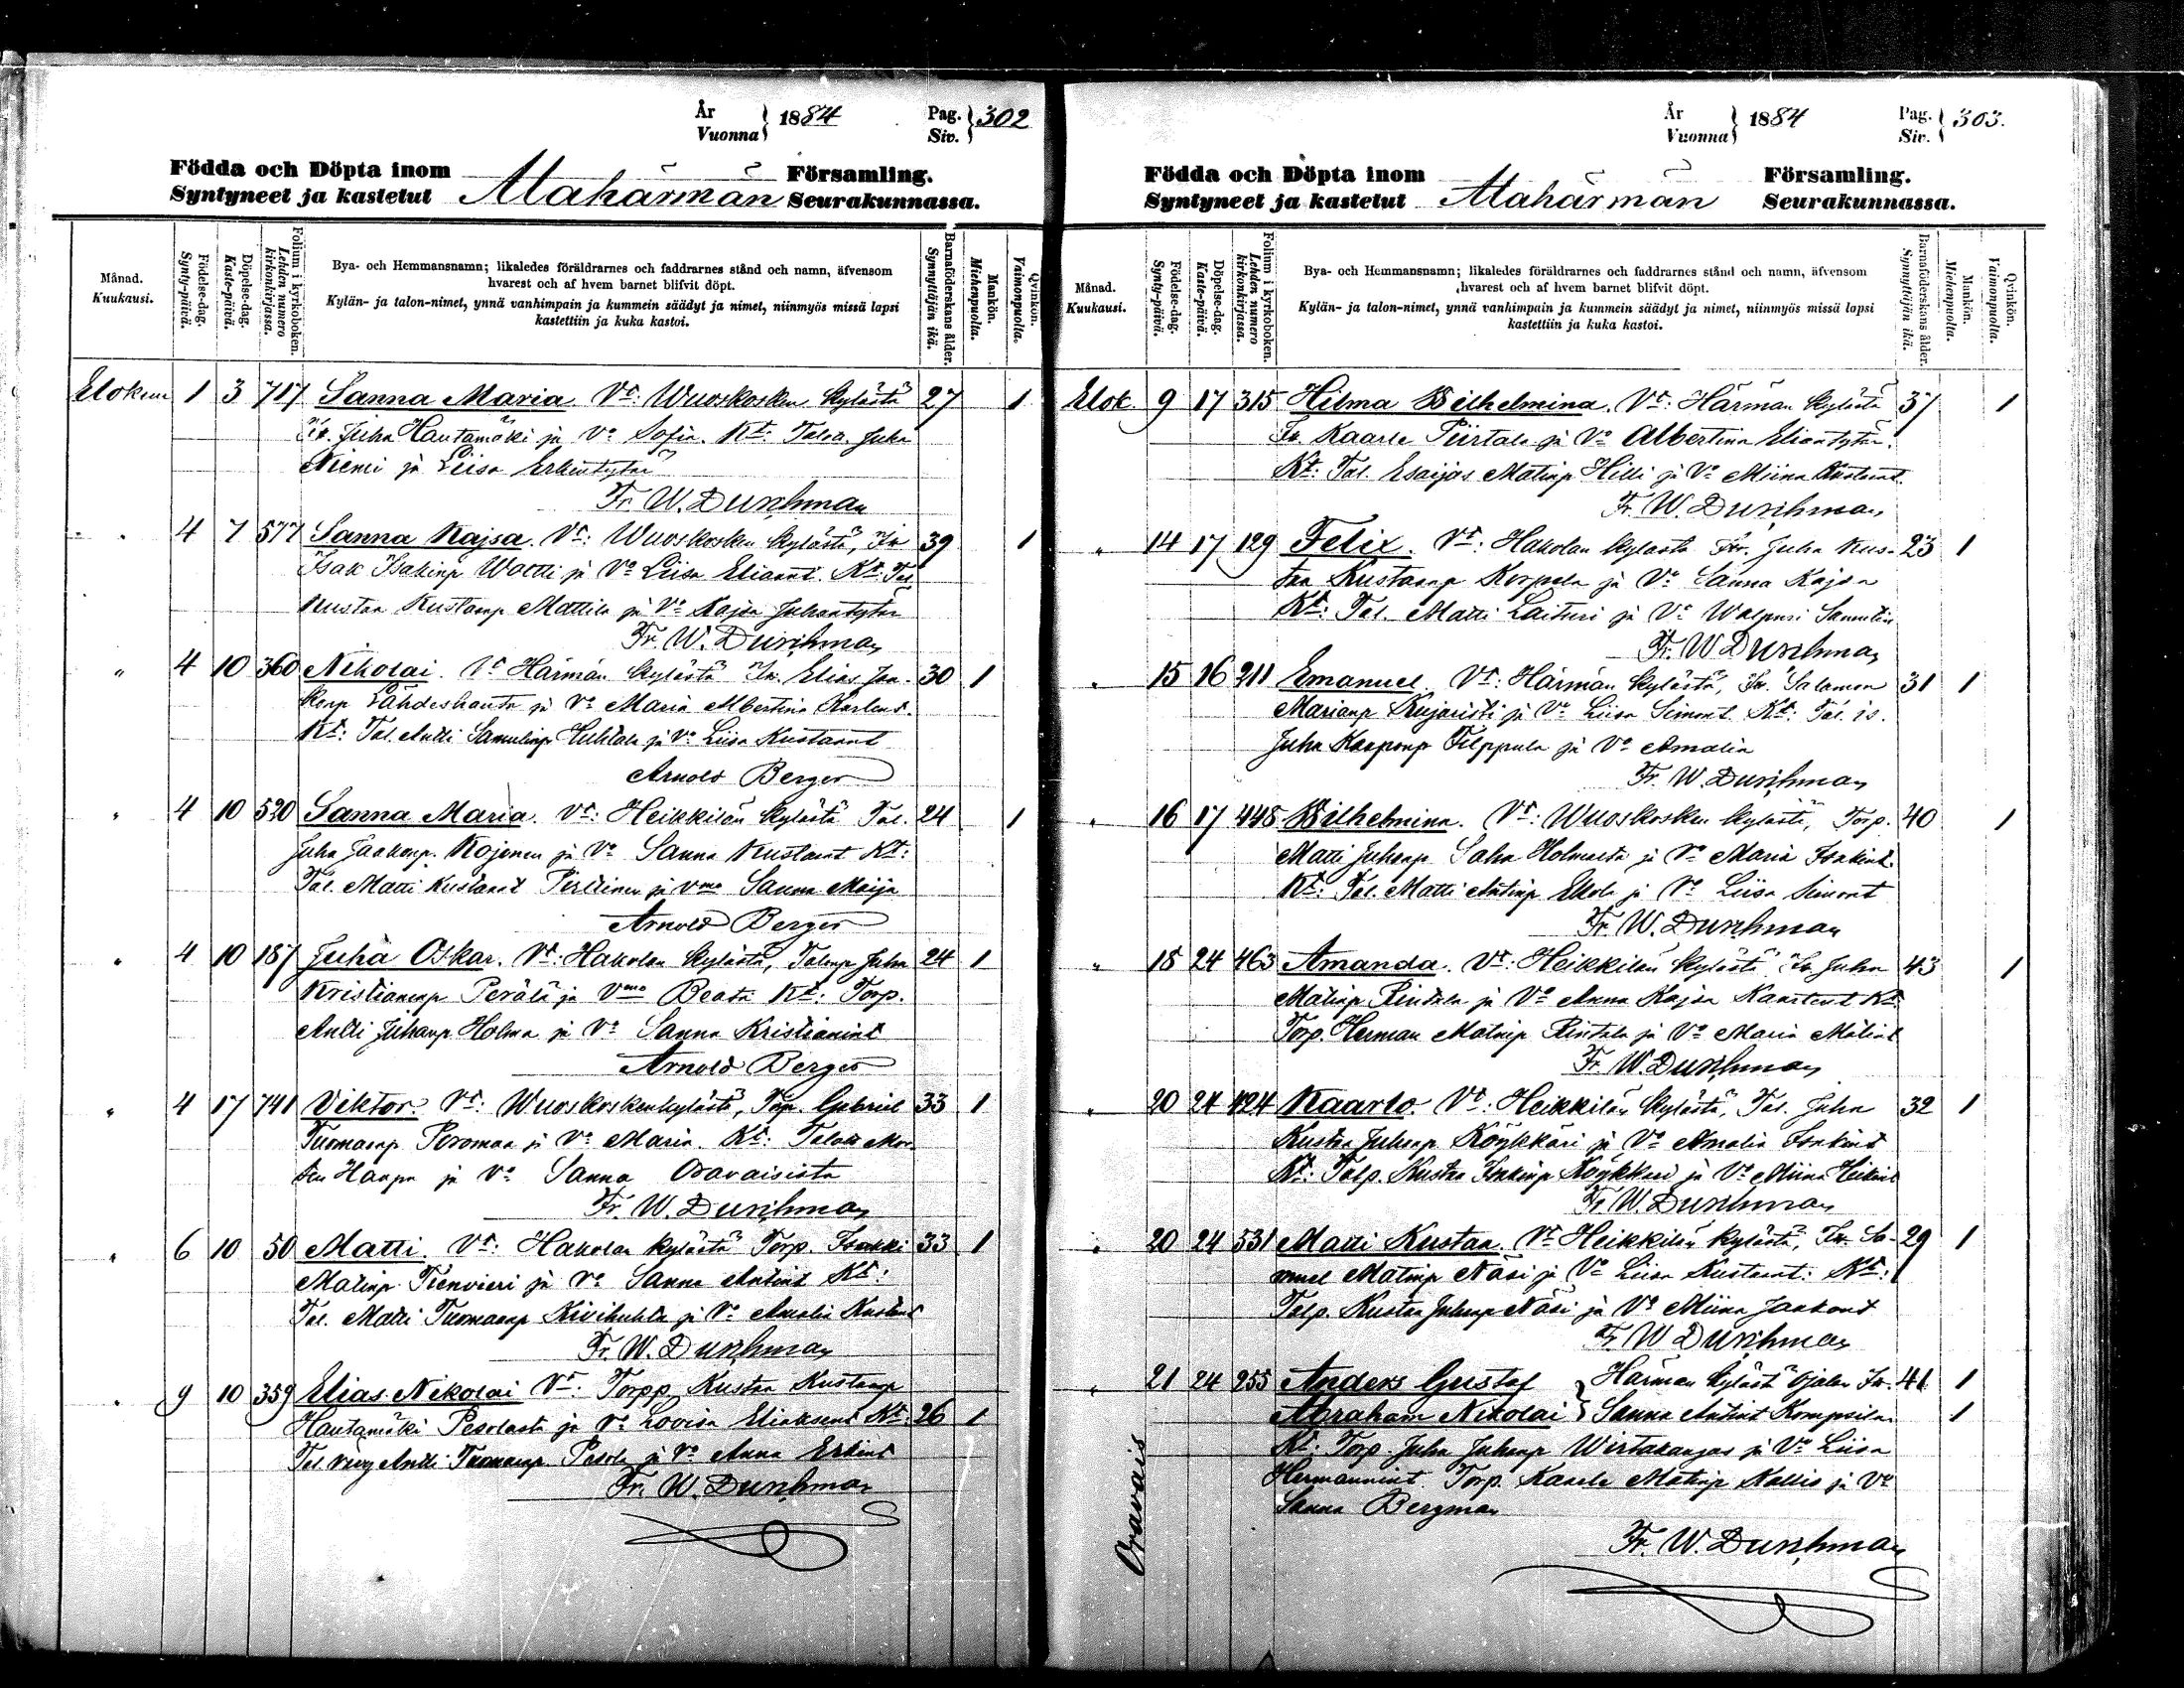 År
Vuonna } 1884
Pag.
Siv. } 302
Födda och Döpta inom
Syntyneet ja kastetut
Alahärmän
Församling.
Seurakunnassa.
Månad.
Kuukausi.
Födelse-dag.
Synty-päivä.
Döpelse-dag.
Kaste-päivä.
Folium i kyrkoboken.
Lehden numero
kirkonkirjassa.
Bya- och Hemmansnamn; likaledes föräldrarnes och faddrarnes stånd och namn, äfvensom
hvarest och af hvem barnet blifvit döpt.
Kylän- ja talon-nimet, ynnä vanhimpain ja kummein säädyt ja nimet, niinmyös missä lapsi
kastettiin ja kuka kastoi.
Barnaföderskans ålder.
Synnyttäjän ikä.
Mankön.
Miehenpuolta.
Qvinkön.
Vaimonpuolta.
Elokuu 1 3 717 Sanna Maria. Vt: Wuoskosken kylästä 27 1
Juha Hautamäki ja Vo Sofia. Kt: Juha
Niemi ja Liisa Erkintytär
Fr. W. Durchman
" 4 7 577 Sanna Kajsa. Vt: Wuoskosken kylästä, Itr 39 1
Isak Isakinp Waetti ja Vo Liisa Eliaant. Kt: Tal
Kustaa Kustaanp Mattila ja Vo Kajsa Juhantytär
Fr. W. Durchman
" 4 10 360 Nikolai. Vt Härmän kylästä Itr. Elias Jaa- 30 1
konp Lähdeshauta ja Vo Maria Albertina Karlent.
Kt: Tal. Antti Samulinp Huhtala ja Vo Liisa Kustaant
Arnold Berger
" 4 10 520 Sanna Maria. Vt: Heikkilän kylästä Tal. 24 1
Juha Jaakonp. Kojonen ja Vo Sanna Kustaant Kt:
Tal. Matti Kustaant Perttinen ja vmo Sanna Maija
Arnold Berger
" 4 10 187 Juha Oskar. Vt: Hakolan kylästä, Talonp Juha 24 1
Kristianinp Perälä ja Vmo Beata Kt: Torp.
Antti Juhanp Holma ja Vo Sanna Kristianint
Arnold Berger
" 4 17 741 Viktor. Vt: Wuoskoskenkylästä, Torp. Gabriel 33 1
Tuomaanp Peromaa ja Vo Maria. Kt:
Haapa ja Vo Sanna Oravaisista
Fr. W. Durchman
" 6 10 50 Matti. Vt: Hakolan kylästä Torp. Isakki 33 1
Matinp Tienvieri ja Vo Sanna Antint Kt:
Tal. Matti Tuomaanp Kivihuhta ja Vo Amalia Kustant
Fr. W. Durchman
" 9 10 359 Elias Nikolai Vt: Torpp. Kustaa Kustaanp
Hautamäki Pesolasta ja Vo Lovisa Eliaksent Kt. 26 1
Tal. Antti Tuomaanp. Pesola ja Vo Anna Erkint
Fr. W. Durchman
År
Vuonna } 1884
Pag.
Siv. } 303.
Födda och Döpta inom
Syntyneet ja kastetut
Alahärmän
Församling.
Seurakunnassa.
Månad.
Kuukausi.
Födelse-dag.
Synty-päivä.
Döpelse-dag.
Kaste-päivä.
Folium i kyrkoboken.
Lehden numero
kirkonkirjassa.
Bya- och Hemmansnamn; likaledes föräldrarnes och faddrarnes stånd och namn, äfvensom
hvarest och af hvem barnet blifvit döpt.
Kylän- ja talon-nimet, ynnä vanhimpain ja kummein säädyt ja nimet, niinmyös missä lapsi
kastettiin ja kuka kastoi.
Barnaföderskans ålder.
Synnyttäjän ikä.
Mankön.
Miehenpuolta.
Qvinkön.
Vaimonpuolta.
Elok. 9 17 315 Hilma Wilhelmina. Vt: Härmän kylästä 37 1
Itr. Kaarle Piirtala ja Vo Albertina Eliantytär.
Kt: Tal. Esaijas Matinp Hilli ja Vo Miina Kustaant.
Fr. W. Durchman
" 14 17 129 Felix. Vt: Hakolan kylästä Itr. Juha Kus- 23 1
taa Kustaanp Korpela ja Vo Sanna Kajsa
Kt: Tal. Matti Laituri ja Vo Walpuri Samulin
Fr. W. Durchman
" 15 16 211 Emanuel. Vt: Härmän kylästä, Itr. Salomon 31 1
Marianp Kujaristi ja Vo Liisa Simont. Kt: Tal. is.
Juha Kaaponp Filppula ja Vo Amalia
Fr. W. Durchman
" 16 17 448 Wilhelmina. Vt: Wuoskosken kylästä, Torp. 40 1
Matti Juhanp Saha Holmasta ja Vo Maria Isakint.
Kt: Tal. Matti Antinp Ekola ja Vo Liisa Simont
Fr. W. Durchman
" 18 24 463 Amanda. Vt: Heikkilän kylästä Itr. Juha 43 1
Matinp Rintala ja Vo Anna Kajsa Kaarlent Kt:
Torp. Herman Matinp Rintala ja Vo Maria Matint
Fr. W. Durchman
" 20 24 424 Kaarlo. Vt: Heikkilän kylästä, Tal. Juha 32 1
Kustaa Juhanp Köykkäri ja Vo Amalia Isakint
Kt: Talp. Kustaa Isakinp Köykkäri ja Vo Miina Heikint
Fr. W. Durchman
" 20 24 531 Matti Kustaa. Vt: Heikkilän kylästä, Itr. Sa- 29 1
muel Matinp Näsi ja Vo Liisa Kustaant: Kt:
Talp. Kustaa Juhanp Näsi ja Vo Miina Jaakont
Fr. W. Durchman
" 21 24 255 Anders Gustaf } Härmän kylästä Ojalan Itr. 41 1
Abraham Nikolai } Sanna Antint Kompsila 1
Kt: Torp. Juha Juhanp Wirtakangas ja Vo Liisa
Hermannint. Torp. Kaarle Matinp Kallio ja Vo
Sanna Bergman
Oravais
Fr. W. Durchman